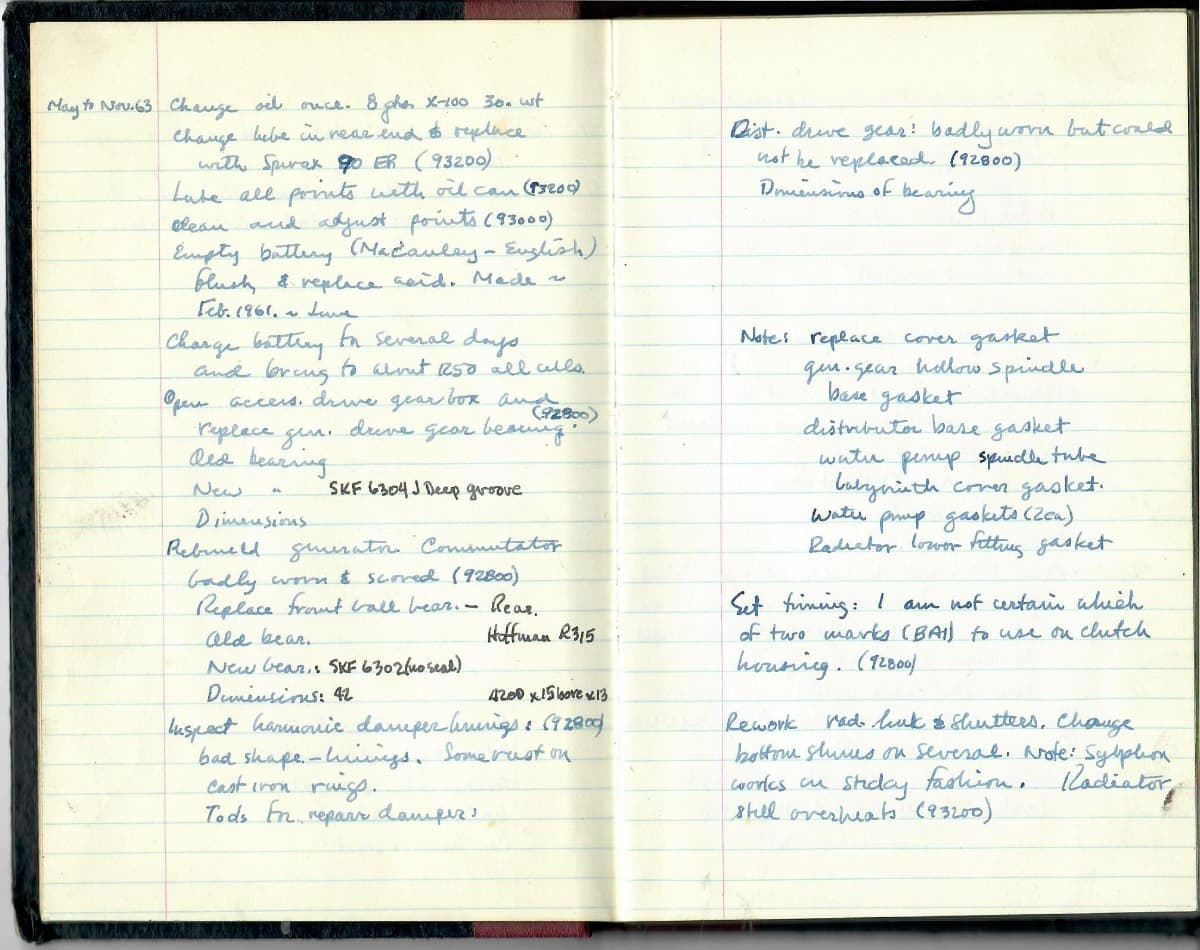 May to Nov. 63 Change oil once. 8 qts. X-100 30. wt
Change lube in rear end & replace
with Spirax 90 EP (93200)
Lube all points with oil can (93200)
Clean and adjust points (93000)
Empty battery (Macauley - English)
flush & replace acid. Made ~
Feb. 1961. ~ June
Charge battery for several days
and bring to about 1250 all cells.
Open access. drive gear box and
(92800)
replace gen. drive gear bearing.
Old bearing
New " SKF 6304 J Deep groove
Dimensions
Rebuild generator. Commutator
badly worn & scored (92800)
Replace front ball bear. - Rear.
Old bear. Hoffman R315
New bear.: SKF 6302 (no seal)
Dimensions: 42 4200 x 15 bore x 13
Inspect harmonic damper linings: (92800)
bad shape. - linings. Some rust on
cast iron rings.
Tools for repair damper:
Dist. drive gear: badly worn but could
not be replaced. (92800)
Dimensions of bearing
Note: replace cover gasket
gen. gear hollow spindle
base gasket
distributor base gasket
water pump spindle tube
labyrinth cover gasket.
Water pump gaskets (2ea)
Radiator lower fitting gasket
Set timing: I am not certain which
of two marks (BAI) to use on clutch
housing. (92800)
Rework rad. link & shutters. Change
bottom shims on several. Note: Sylphon
works in sticky fashion. Radiator
still overheats (93200)